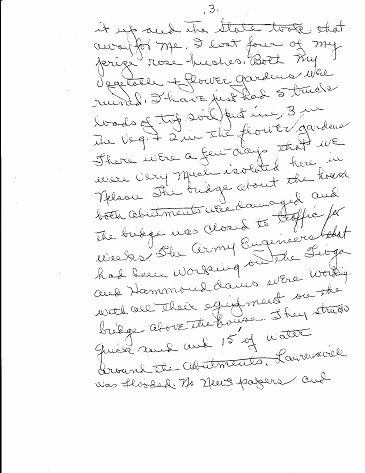 .3.
it up and the State took that
away for me. I lost four of my
prize rose bushes. Both my
vegetable + flower gardens were
ruined. I have just had 5 truck
loads of top soil put in, 3 in
the Veg. + 2 in the flower gardens
There were a few days that we
were very much isolated here in
Nelson. The bridge about the house
both abutments were damaged and
the bridge was closed to traffic for
weeks. The Army Engineers that
had been working on the Tioga
and Hammond dams were working
with all their equipment on the
bridge above the house. They struck
quick sand and 15' of water
around the abutments. Lawrenceville
was flooded. No News papers and